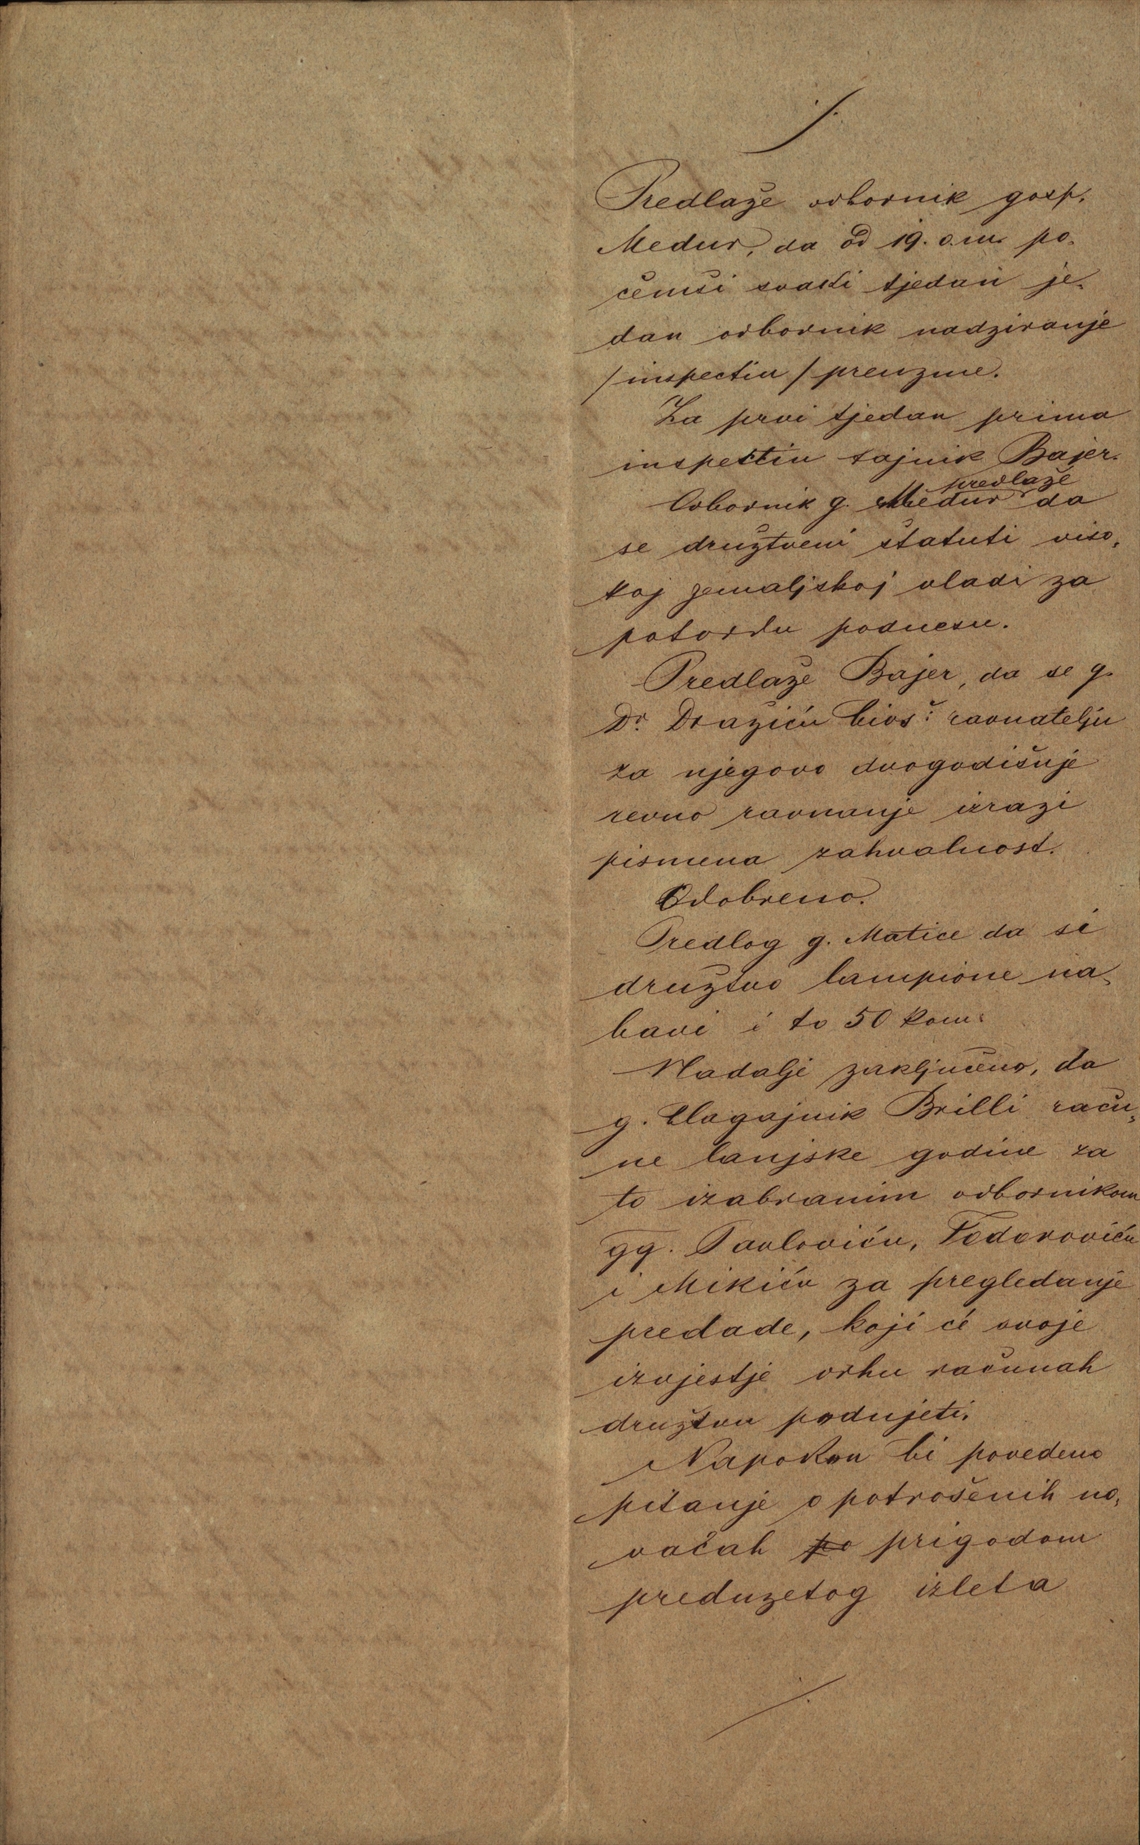 Predlaže odbornik gosp.
Medur, da od 19. o.m. po-
čemši svaki tjedan je-
dan odbornik nadziranje
/inspectiu/ preuzme.
Za prvi tjedan prima
inspectiu tajnik Bajer.
predlaže
Odbornik g. Medur da
se družtveni štatuti viso-
koj zemaljskoj vladi za
potvrdu podnesu.
Predlaže Bajer, da se g.
Dr. Dražiću bivš: ravnatelju
za njegovo dvogodišnje
revno ravnanje izrazi
pismena zahvalnost.
Odobreno.
Predlog g. Matice da si
družtvo lampione na-
bavi i to 50 kom:
Nadalje zaključeno, da
g. blagajnik Brilli raču-
ne lanjske godine za
to izabranim odbornikom
gg. Pavloviću, Todoroviću
i Mikiću za pregledanje
predade, koji će svoje
izvjestje vrhu računah
družtvu podnjeti.
Napokon bi povedeno
pitanje o potrošenih no-
vačah po prigodom
preduzetog izleta